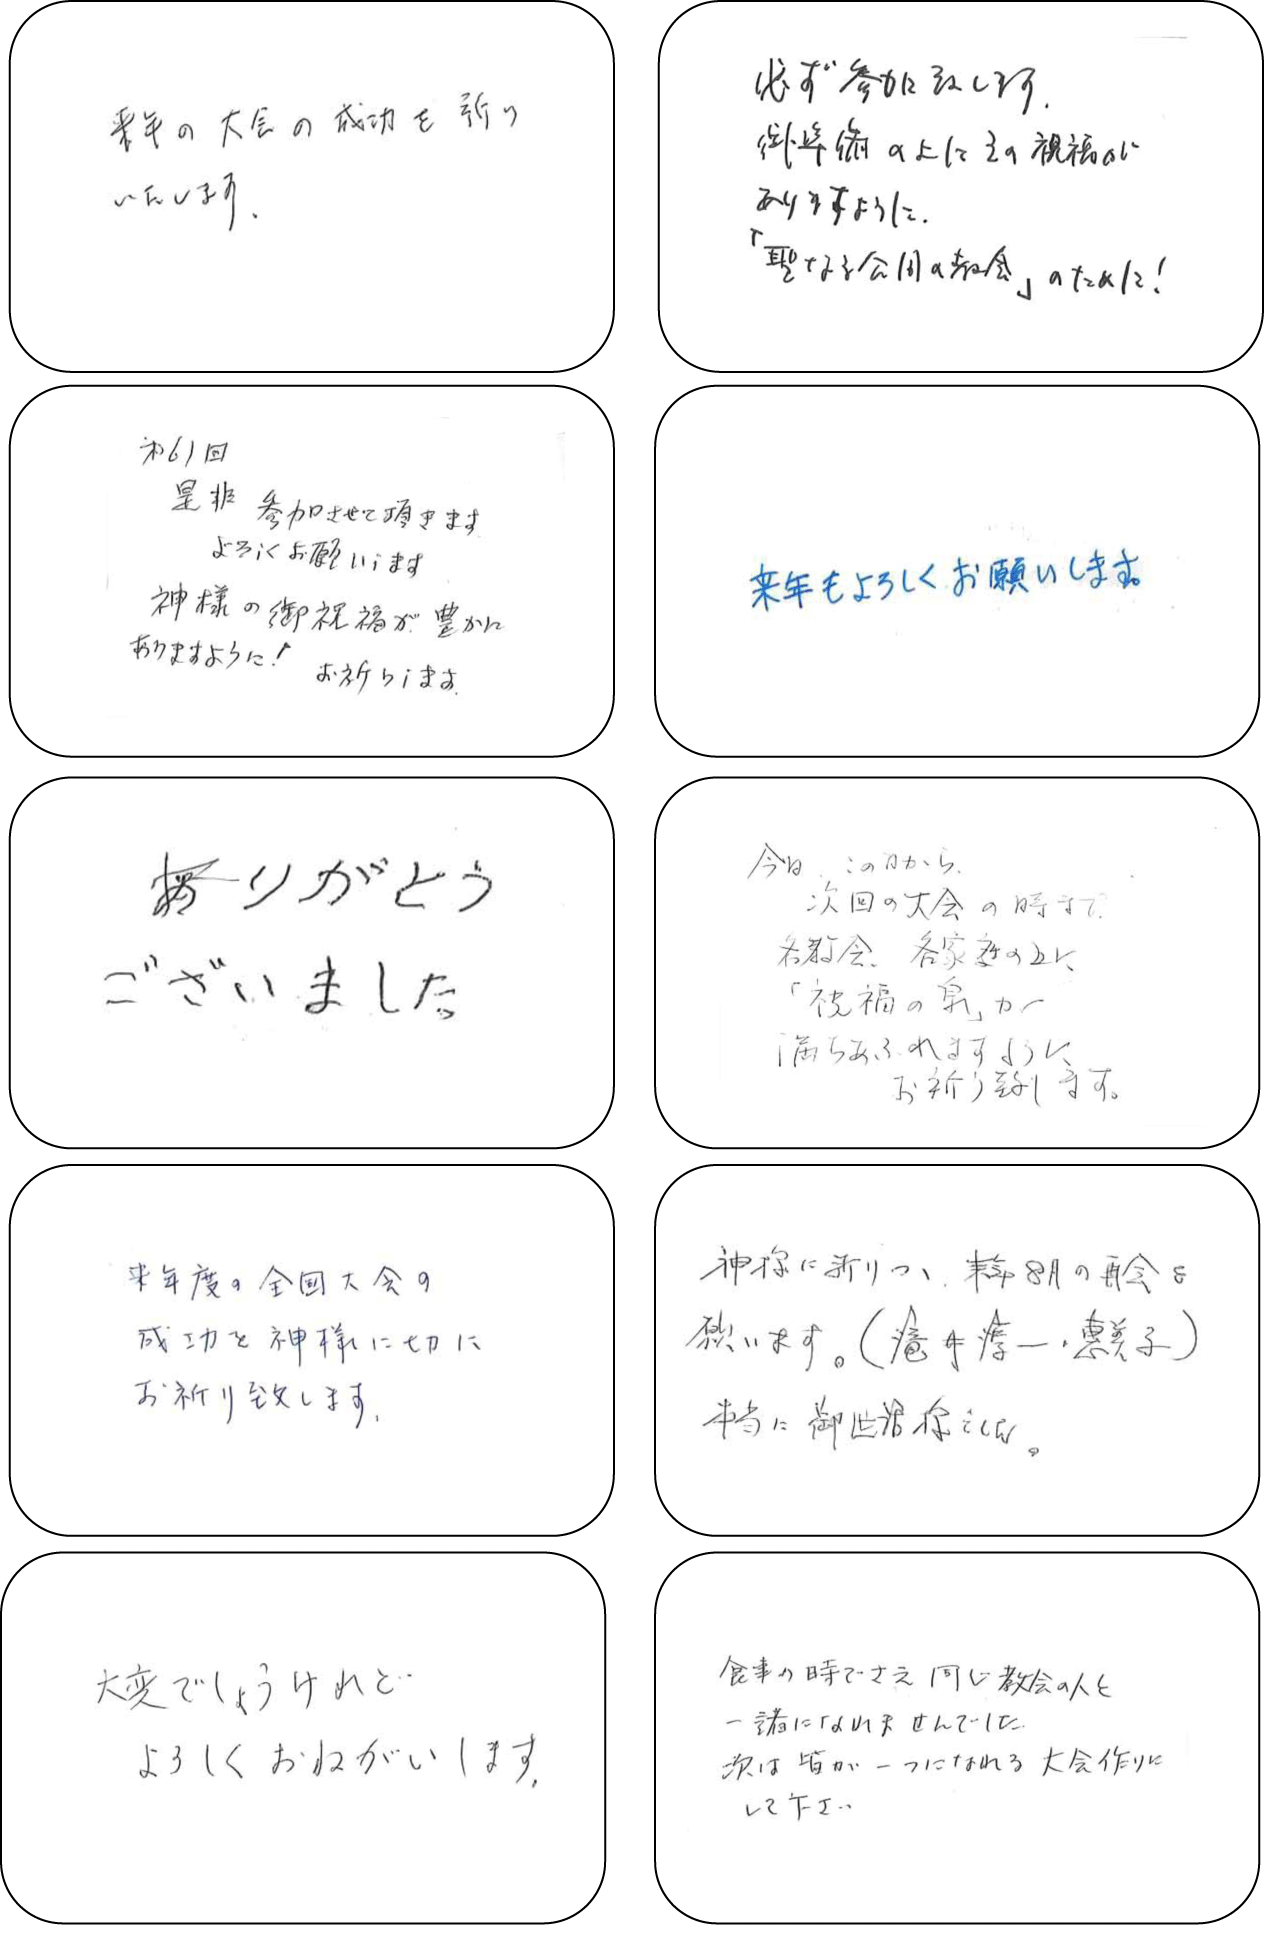 来年の大会の成功を祈り
いたします.
必ず参加致します.
御準備の上に主の祝福が
ありますように.
「聖なる公同の教会」のために!
第61回
是非 参加させて頂きます
よろしくお願いします
神様の御祝福が豊かに
ありますように!
お祈りします.
来年もよろしくお願いします。
ありがとう
ございました
今日、この日から、
次回の大会の時まで
各教会、各家庭の上に、
「祝福の泉」が
満ちあふれますように、
お祈り致します。
来年度の全国大会の
成功を神様に切に
お祈り致します.
神様に祈りつつ、来年8月の再会を
願います。(井淳一・惠美子)
本当に御世話様でした。
大変でしょうけれど
よろしくおねがいします.
食事の時でさえ同じ教会の人と
一諸になれませんでした
次は皆が一つになれる大会作りに
して下さい